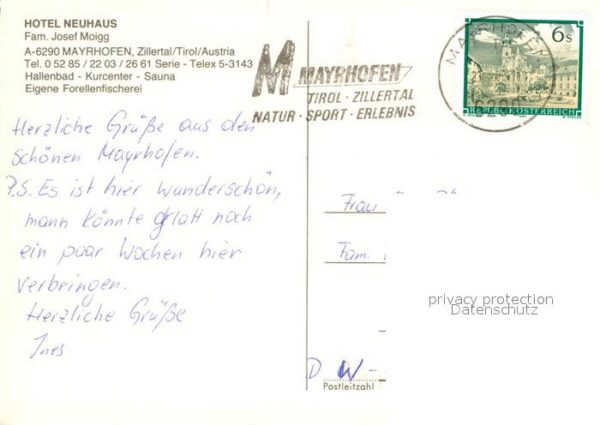 HOTEL NEUHAUS
Fam. Josef Moigg
A-6290 MAYRHOFEN, Zillertal/Tirol/Austria
Tel. 0 52 85 / 22 03 / 26 61 Serie - Telex 5-3143
Hallenbad - Kurcenter - Sauna
Eigene Forellenfischerei
M MAYRHOFEN
TIROL · ZILLERTAL
NATUR · SPORT · ERLEBNIS
6s
REPUBLIK ÖSTERREICH
Herzliche Grüße aus den
schönen Mayrhofen.
P.S. Es ist hier wunderschön,
mann könnte glatt noch
ein paar Wochen hier
verbringen.
Herzliche Grüße
Ines
Frau
Fam.
privacy protection
Datenschutz
D W-
Postleitzahl